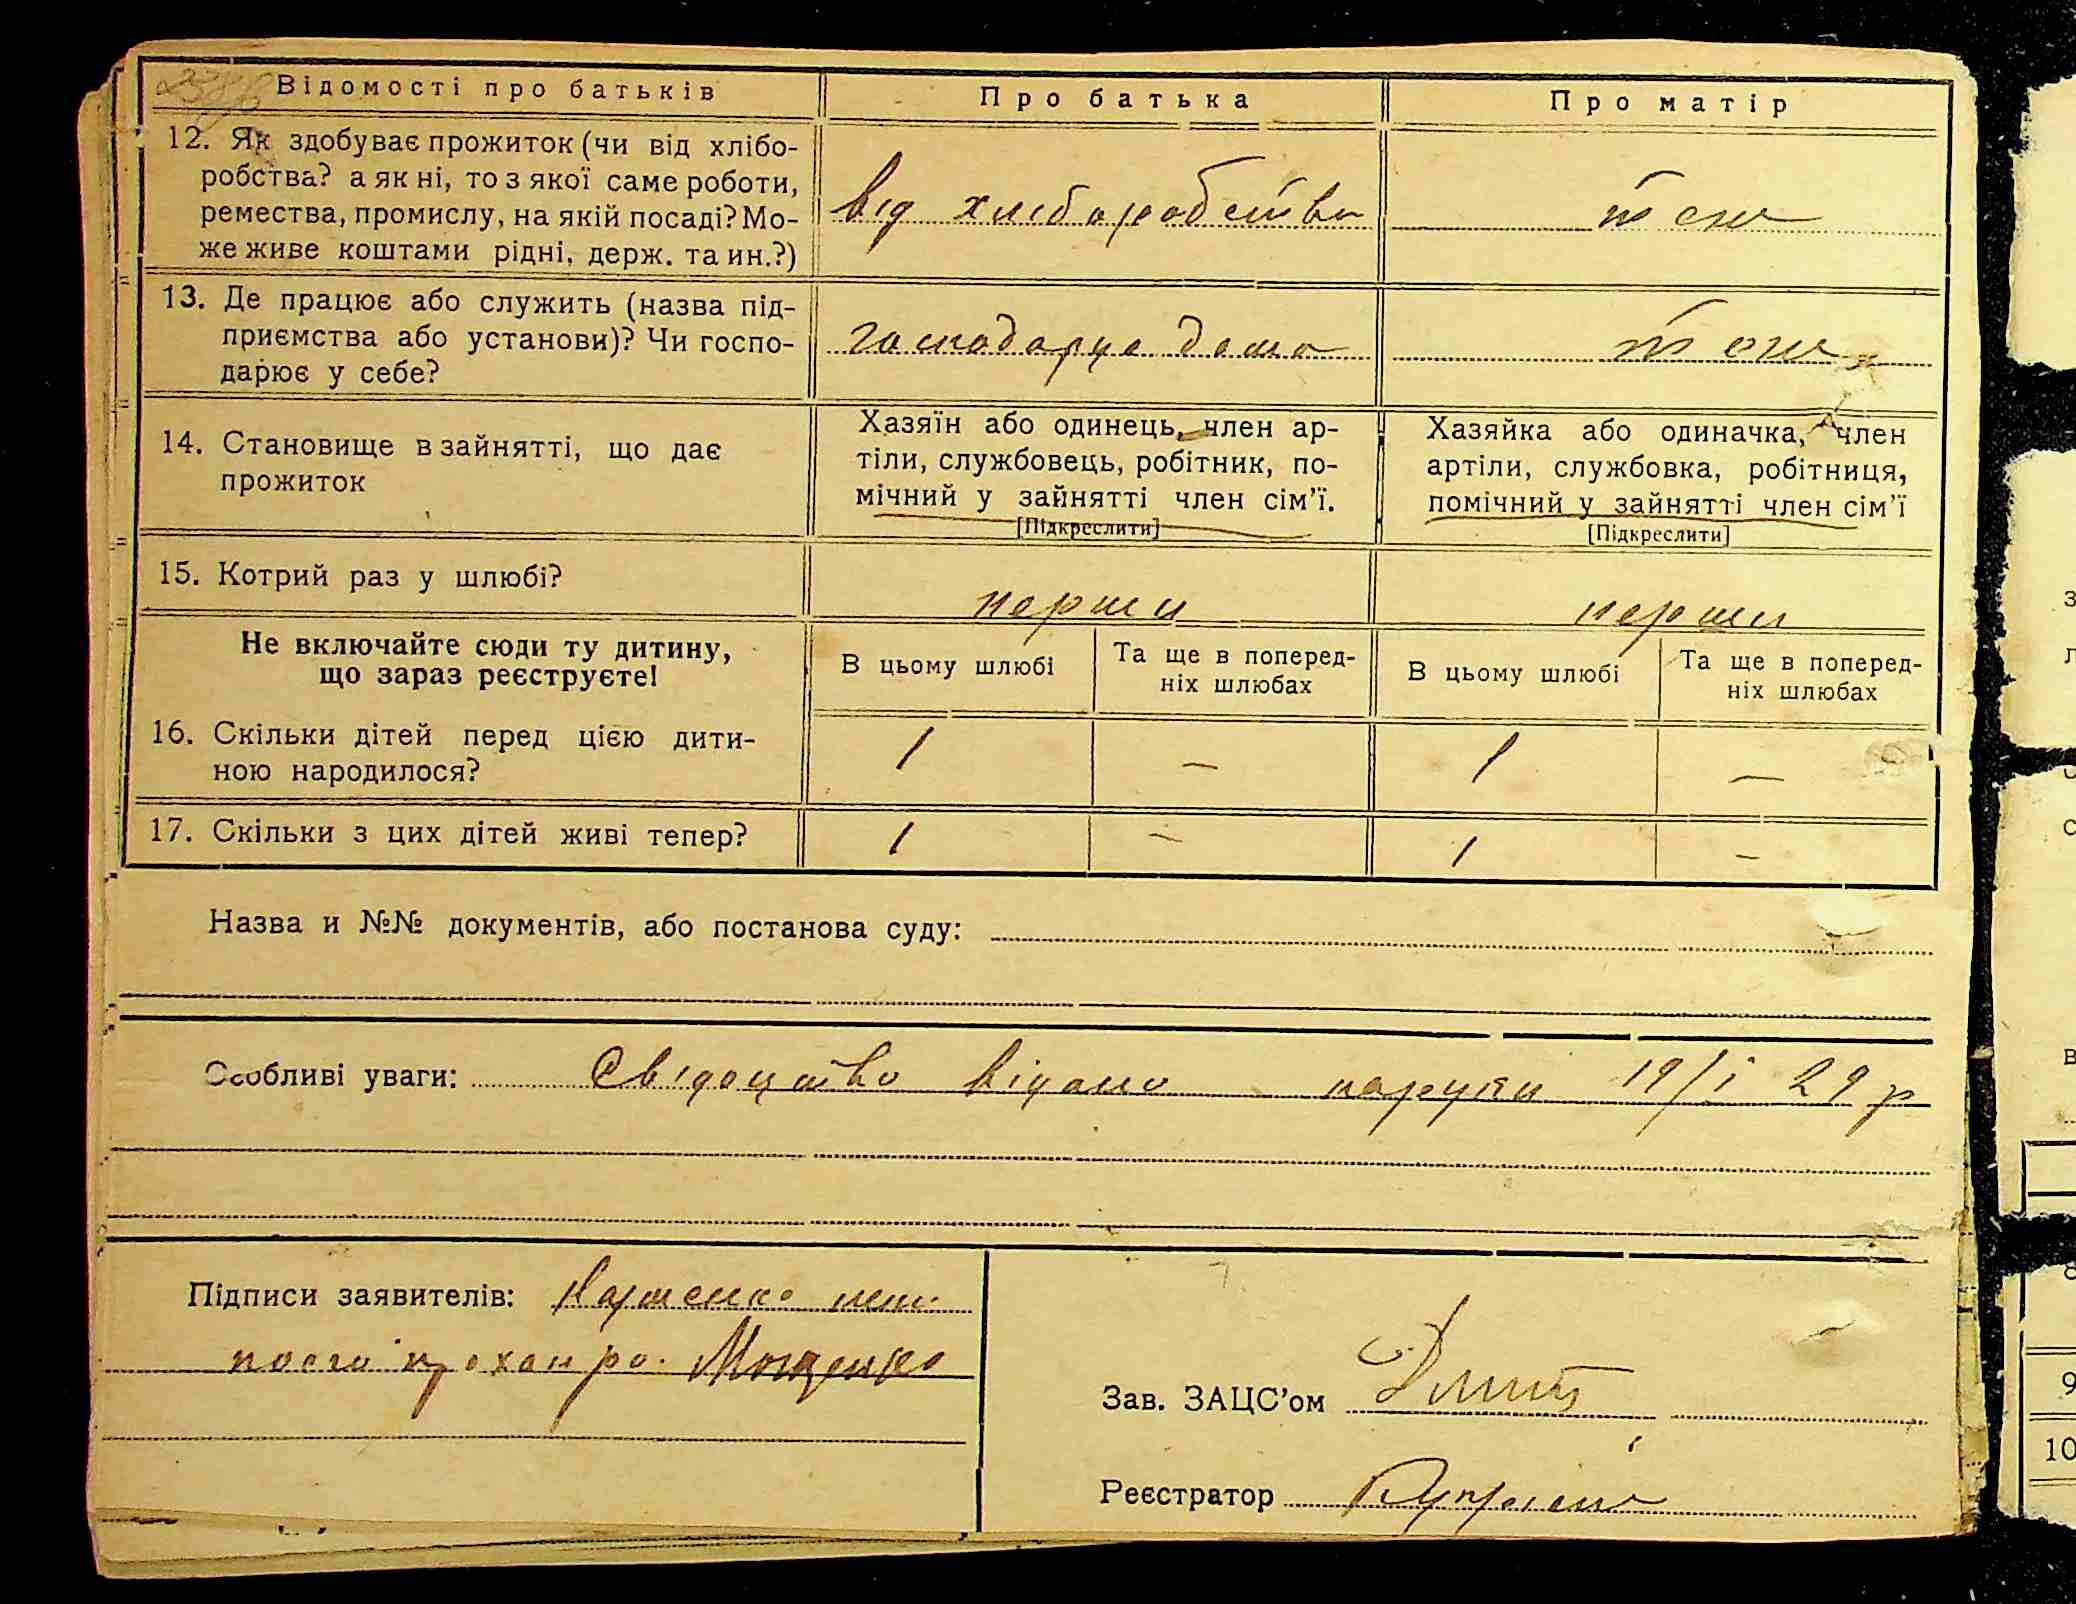 Відомості про батьків
Про батька
Про матір
12. Як здобуває прожиток (чи від хлібо-
робства? а як ні, то з якої саме роботи,
ремества, промислу, на якій посаді? Мо-
же живе коштами рідні, держ. та ин.?)
від хліборобства
теж
13. Де працює або служить (назва під-
приємства або установи)? Чи госпо-
дарює у себе?
господарує дома
теж
14. Становище в зайнятті, що дає
прожиток
Хазяїн або одинець, член ар-
тіли, службовець, робітник, по-
мічний у зайнятті член сім’ї.
[Підкреслити]
Хазяйка або одиначка, член
артіли, службовка, робітниця,
помічний у зайнятті член сім’ї
[Підкреслити]
15. Котрий раз у шлюбі?
перши
перши
Не включайте сюди ту дитину,
що зараз реєструєте!
В цьому шлюбі
Та ще в поперед-
ніх шлюбах
В цьому шлюбі
Та ще в поперед-
ніх шлюбах
16. Скільки дітей перед цією дити-
ною народилося?
1 — 1 —
17. Скільки з цих дітей живі тепер?
1 — 1 —
Назва и №№ документів, або постанова суду:
Особливі уваги: Свідоцтво відано наруки 19/І 29 р
Підписи заявителів:
Зав. ЗАЦС’ом
Реєстратор